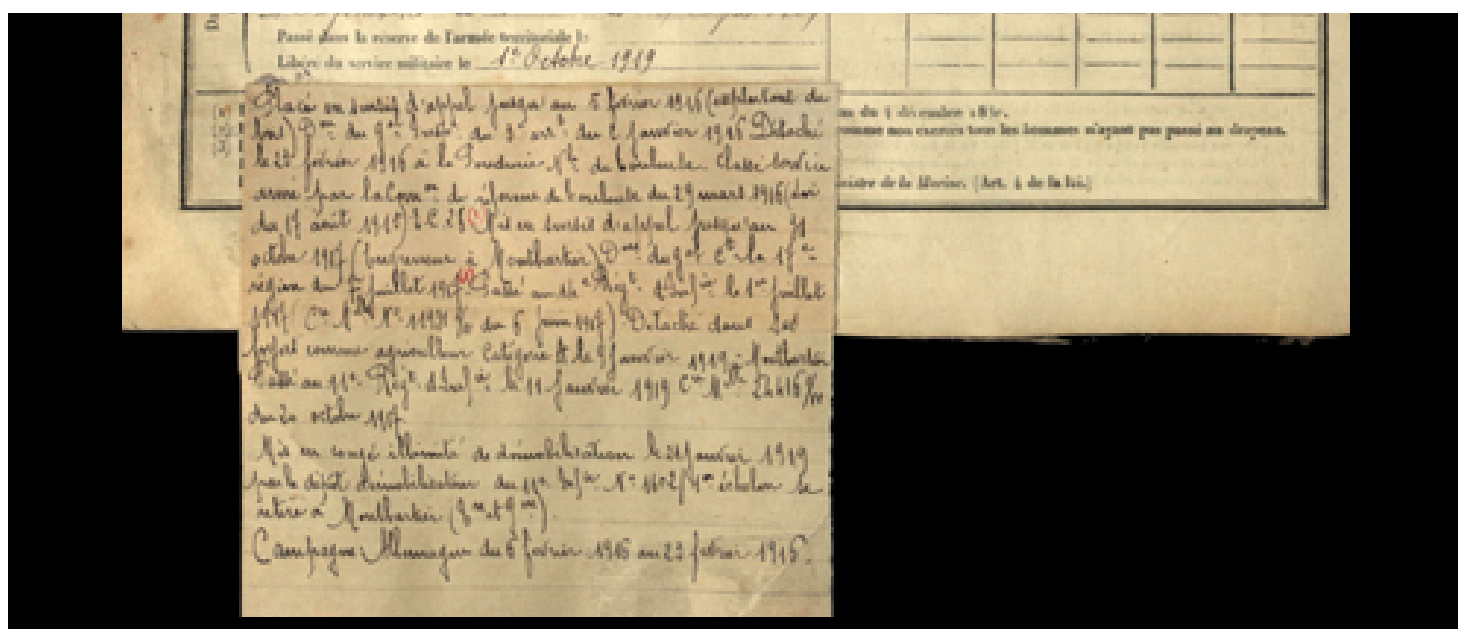 Passé dans la réserve de l'armée territoriale le
Libéré du service militaire le 1er Octobre 1919
Placé en sursis d'appel jusqu'au 5 février 1916 (exploitant de
bois) Don du Gal du 2 Janvier 1916 Détaché
le 23 février 1916 à la Poudrerie Nle de Toulouse. Classé service
armé par la Comon de réforme de Toulouse du 29 mars 1916 (loi
du 17 août 1915) Mis en sursis d'appel jusqu'au 31
octobre 1917 à Montbartier) Don du Gal Ct la 17e
région du juillet 1917 Passé au 14e Régt d'Infie le 1er juillet
1917 (Cre Mlle No du 6 juin 1917) Détaché dans ses
foyers comme agriculteur Catégorie le Janvier 1919 à Montbartier
Passé au 11e Régt d'Infie le 11 Janvier 1919 Cre Mlle
du 20 octobre 1917
Mis en congé illimité de démobilisation le 21 Janvier 1919
par le dépôt démobilisateur du 11e Infie No 4me échelon se
retire à Montbartier (Tn et Gne)
Campagne: Allemagne du 6 février 1916 au 23 février 1916.
du 5 décembre
comme non exercés tous les hommes n'ayant pas passé au drapeau.
de la Marine. (Art. 4 de la loi.)